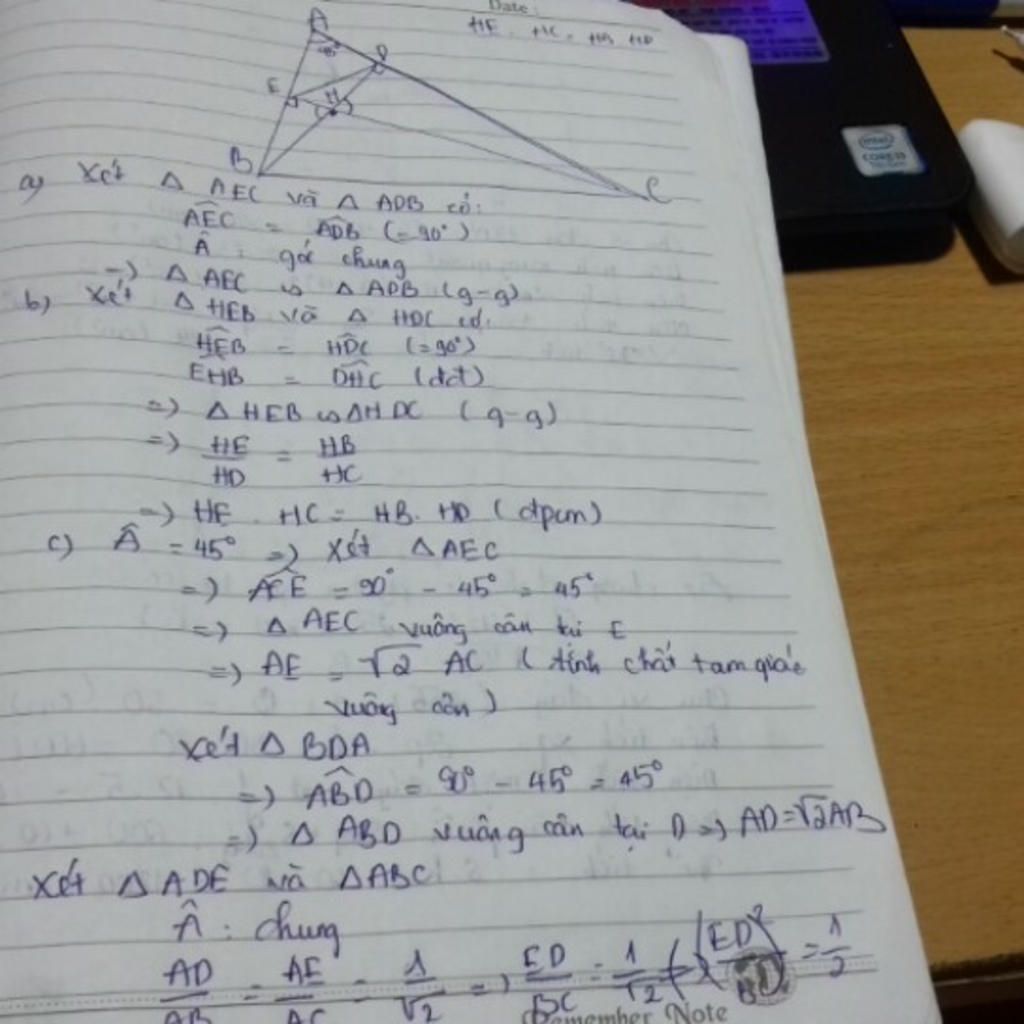 Date :
HE . HC = HB HD
A
45°
D
E
H
B
C
intel
CORE i3
a) Xét Δ AEC và Δ ADB có:
AEC = ADB (= 90°)
Â : góc chung
=> Δ AEC ∽ Δ ADB (g-g)
b) Xét Δ HEB và Δ HDC có:
HEB = HDC (= 90°)
EHB = DHC (dct)
=> Δ HEB ∽ Δ HDC (g-g)
=> HE/HD = HB/HC
=> HE . HC = HB. HD (đpcm)
c) Â = 45° => Xét Δ AEC
=> ACE = 90° - 45° = 45°
=> Δ AEC vuông cân tại E
=> AE = √2 AC ( tính chất tam giác
vuông cân )
Xét Δ BDA
=> ABD = 90° - 45° = 45°
=> Δ ABD vuông cân tại D => AD = √2 AB
Xét Δ ADE và Δ ABC
Â : chung
AD/AB = AE/AC = 1/√2 => ED/BC = 1/√2 = 1/2
Remember Note